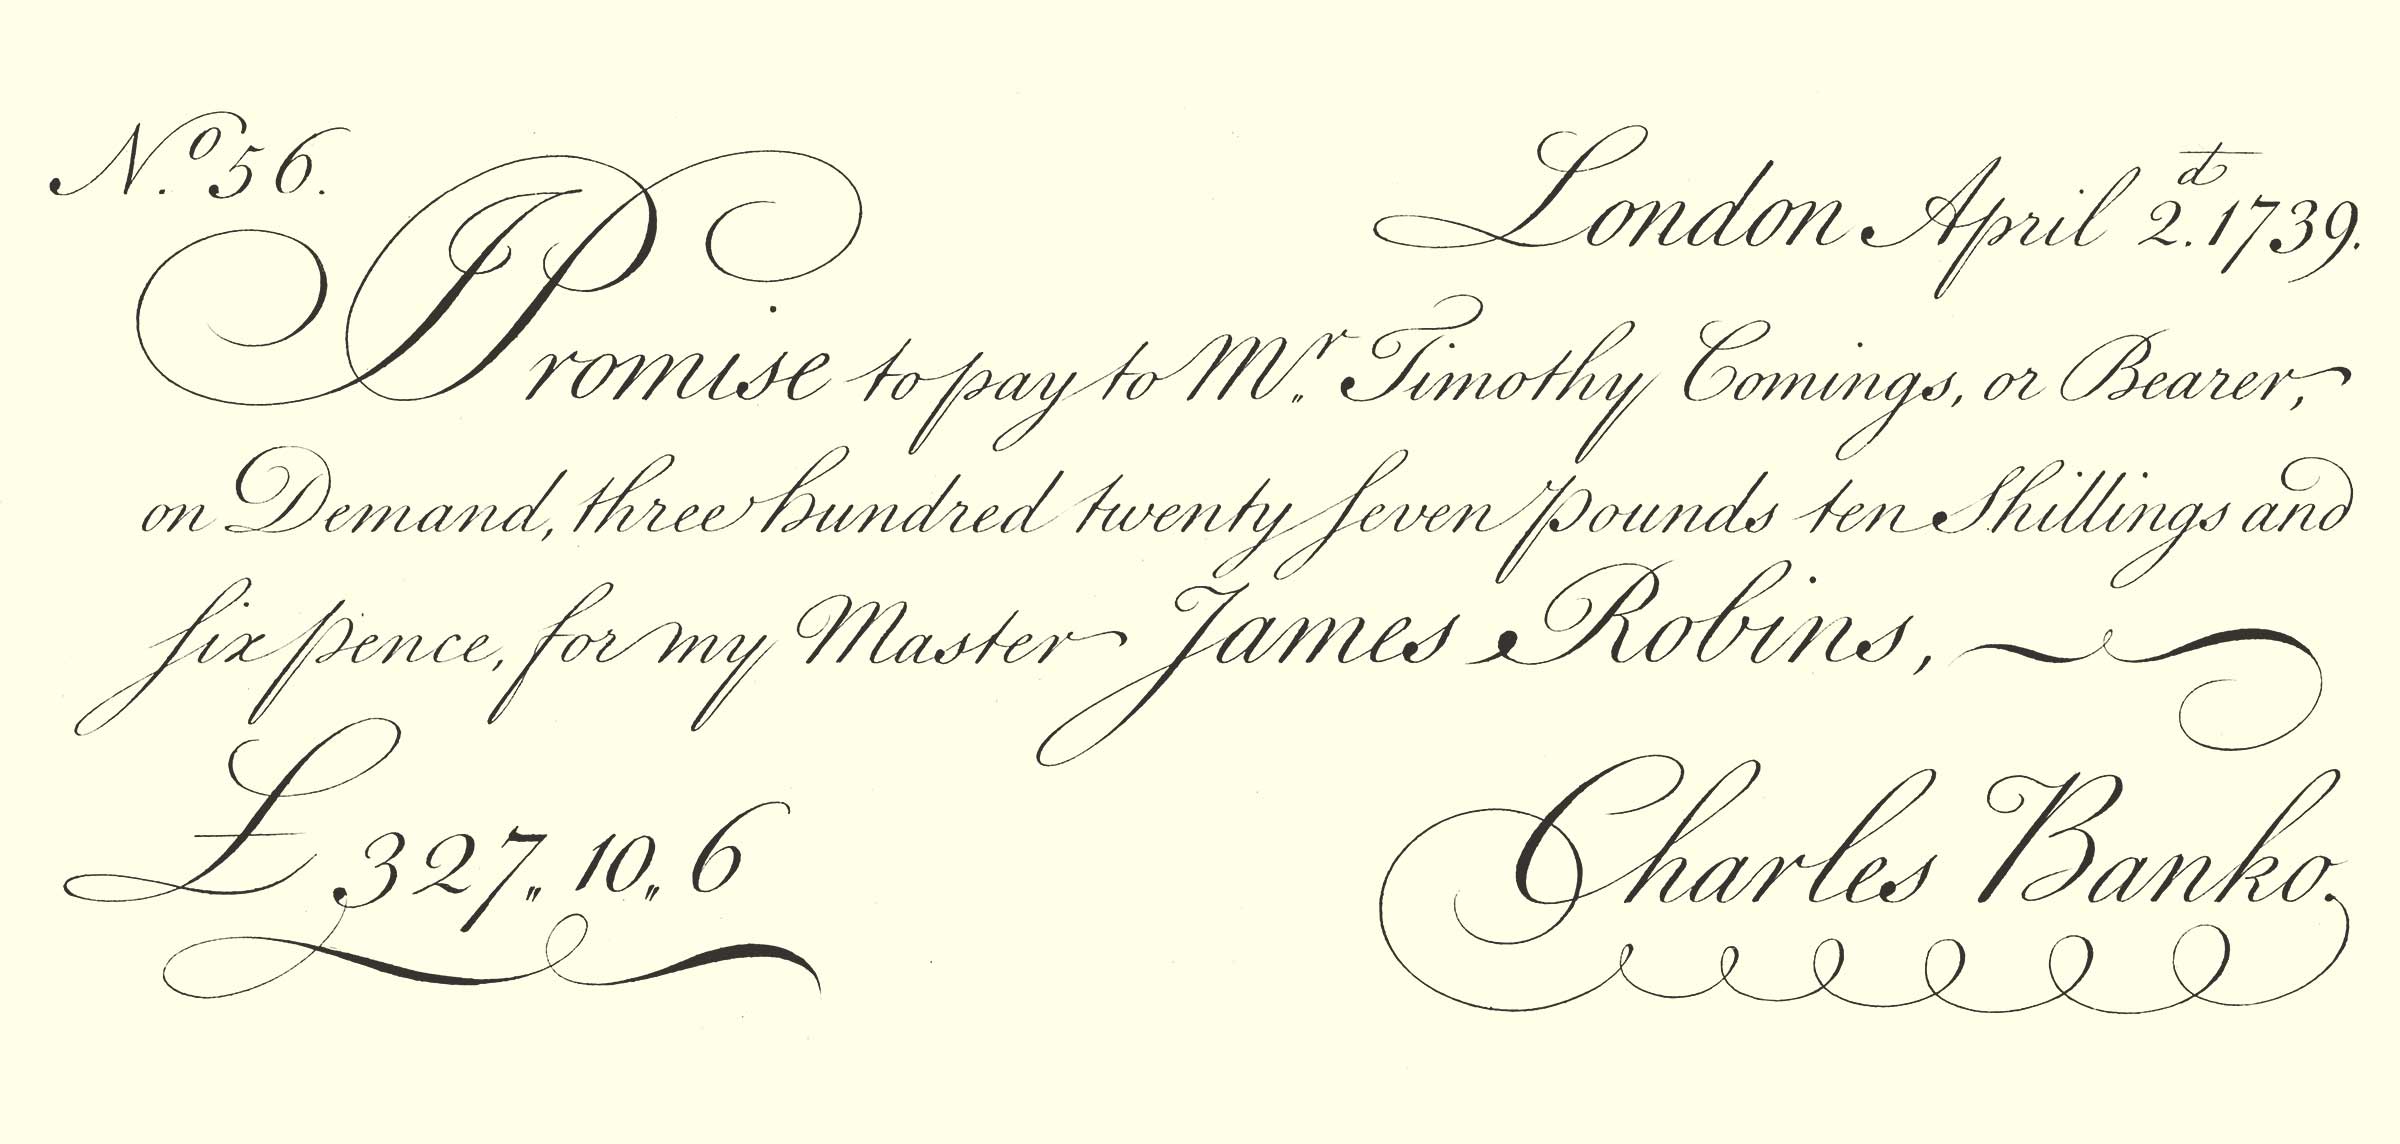 N.º 56.
London April 2.ᵈ 1739.
I Promise to pay to M.ʳ Timothy Comings, or Bearer,
on Demand, three hundred twenty ſeven pounds ten Shillings and
ſix pence, for my Master James Robins,
£ 327,, 10,, 6
Charles Banko.